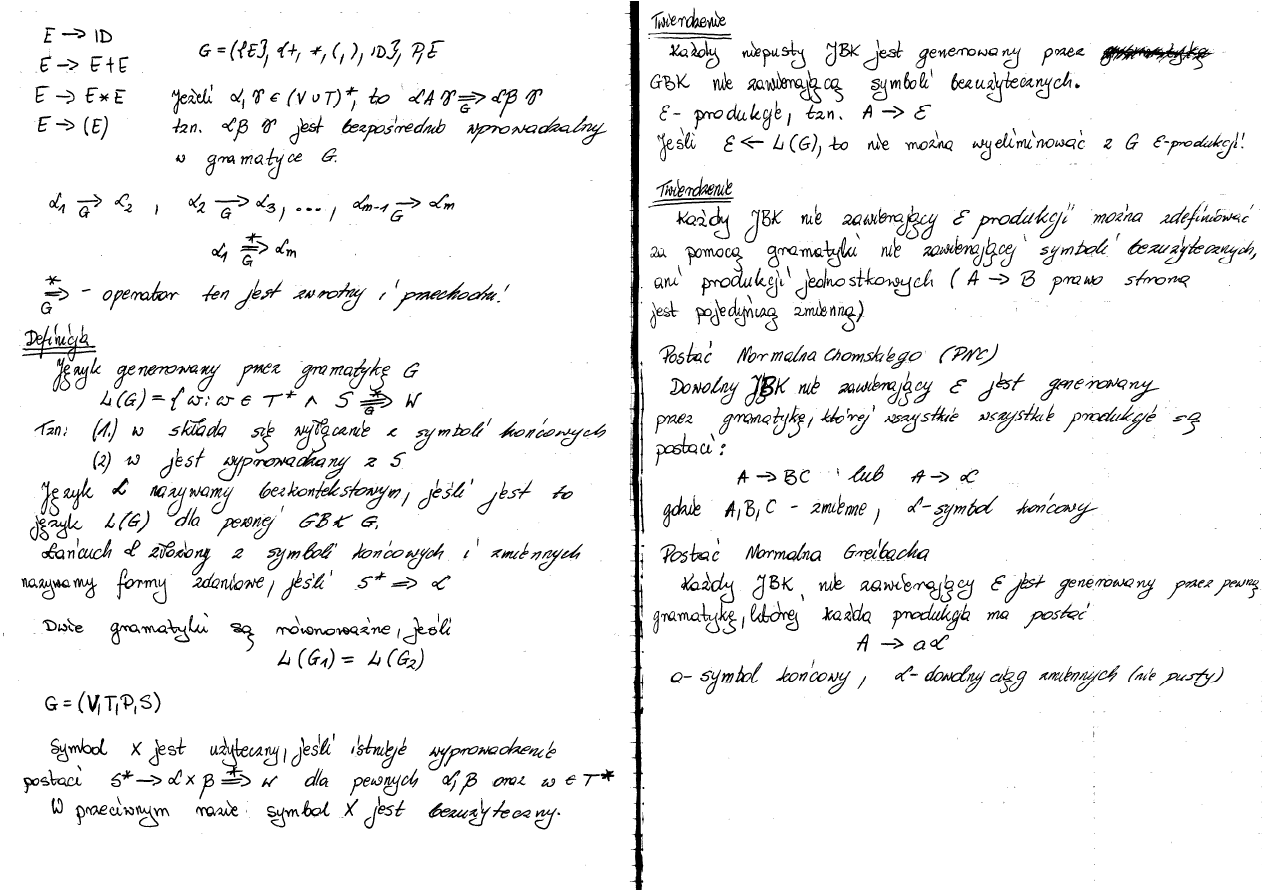 E → ID
E → E+E
G = ({E}, {+, *, (, ), ID}, P, E
E → E*E
Jeżeli α, γ ∈ (V ∪ T)*, to αAγ ⇒G αβγ
E → (E)
tzn. αβγ jest bezpośrednio wprowadzalny
w gramatyce G.
α1 ⇒G α2 , α2 ⇒G α3, ..., αm-1 ⇒G αm
α1 *⇒G αm
*⇒G - operator ten jest zwrotny i przechodni!
Definicja
Język generowany przez gramatykę G
L(G) = { w: w ∈ T* ∧ S *⇒G W
Tzn: (1.) w składa się wyłącznie z symboli końcowych
(2) w jest wyprowadzany z S
Język L nazywamy bezkontekstowym, jeśli jest to
język L(G) dla pewnej GBK G.
Łańcuch α złożony z symboli końcowych i zmiennych
nazywamy formy zdaniowe, jeśli S* ⇒ α
Dwie gramatyki są równoważne, jeśli
L(G1) = L(G2)
G = (V, T, P, S)
Symbol X jest użyteczny, jeśli istnieje wyprowadzenie
postaci S* → α X β *⇒ W dla pewnych α, β oraz w ∈ T*
W przeciwnym razie symbol X jest bezużyteczny.
Twierdzenie
Każdy niepusty JBK jest generowany przez
GBK nie zawierającą symboli bezużytecznych.
ε - produkcje, tzn. A → ε
Jeśli ε ← L(G), to nie można wyeliminować z G ε-produkcji!
Twierdzenie
Każdy JBK nie zawierający ε produkcji można zdefiniować
za pomocą gramatyki nie zawierającej symboli bezużytecznych,
ani produkcji jednostkowych (A → B prawo stroną
jest pojedynczą zmienną)
Postać Normalna Chomskiego (PNC)
Dowolny JBK nie zawierający ε jest generowany
przez gramatykę, której wszystkie wszystkie produkcje są
postaci:
A → BC lub A → α
gdzie A, B, C - zmienne, α - symbol końcowy
Postać Normalna Greibacha
Każdy JBK nie zawierający ε jest generowany przez pewną
gramatykę, której każda produkcja ma postać
A → aα
a - symbol końcowy, α - dowolny ciąg zmiennych (nie pusty)